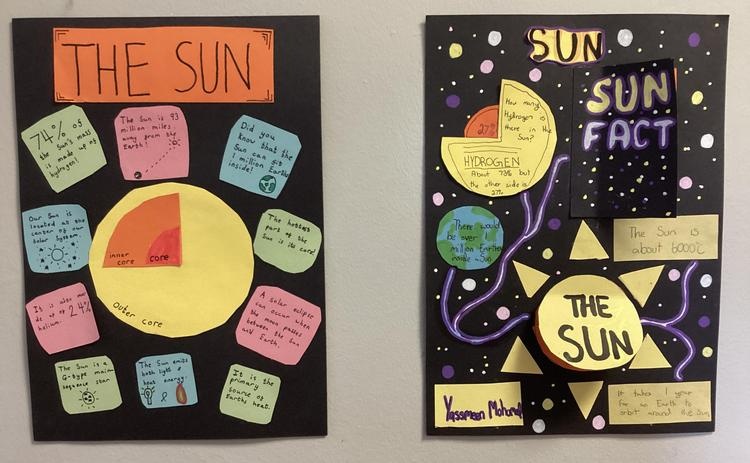 THE SUN
74% of
the Sun's mass
is made up of
hydrogen!
The Sun is 93
million miles
away from the
Earth!
Did you
know that the
Sun can fit
1 million Earths
inside!
Our Sun is
located at the
center of our
Solar System.
The hottest
part of the
Sun is its core!
inner
core
core
Outer core
It is also made
up of 24%
helium.
A solar eclipse
can occur when
the moon passes
between the sun
and Earth
The Sun is a
G-type main
sequence star
The Sun emits
both light &
heat energy.
&
It is the
primary
source of
Earths heat.
SUN
SUN
FACT
How many
Hydrogen is
there in the
Sun?
27%
HYDROGEN
About 73% but
the other side is
27%
There would
be over 1
million Earths
inside a Sun
The Sun is
about 6000°C
THE
SUN
Yassmeen
It takes 1 year
for an Earth to
orbit around the Sun